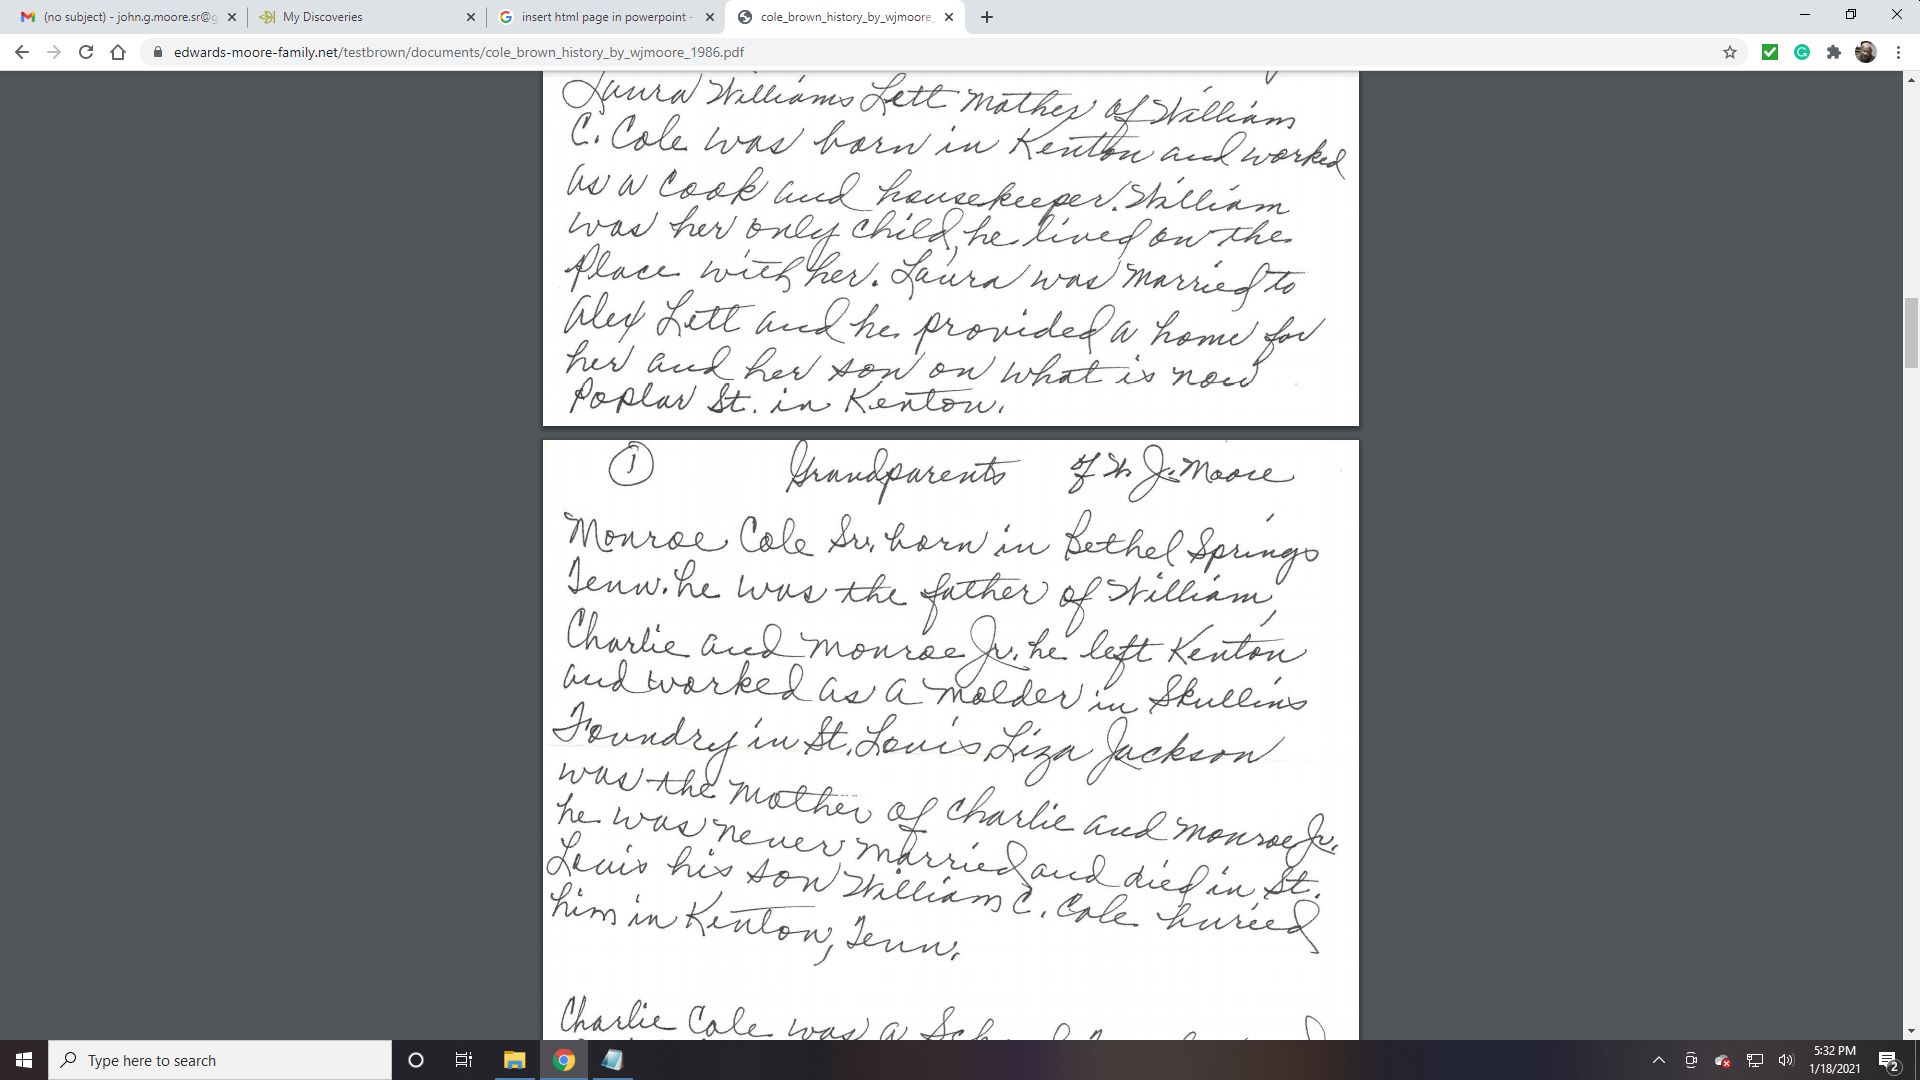 (no subject) - john.g.moore.sr@g
My Discoveries
insert html page in powerpoint -
cole_brown_history_by_wjmoore_
edwards-moore-family.net/testbrown/documents/cole_brown_history_by_wjmoore_1986.pdf
Laura Williams Lett Mother of William
C. Cole was born in Kenton and worked
as a cook and housekeeper. William
was her only child, he lived on the
place with her. Laura was married to
Alex Lett and he provided a home for
her and her son on what is now
Poplar St. in Kenton.
1 Grandparents of W. J. Moore
Monroe Cole Sr. born in Bethel Springs
Tenn. he was the father of William,
Charlie and Monroe Jr. he left Kenton
and worked as a molder in Skullins
Foundry in St. Louis Liza Jackson
was the mother of Charlie and Monroe Jr.
he was never married and died in St.
Louis his son William C. Cole buried
him in Kenton, Tenn.
Charlie Cole was a
Type here to search
5:32 PM
1/18/2021
2